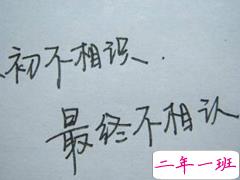 初不相识.
最终不相认
二年一班